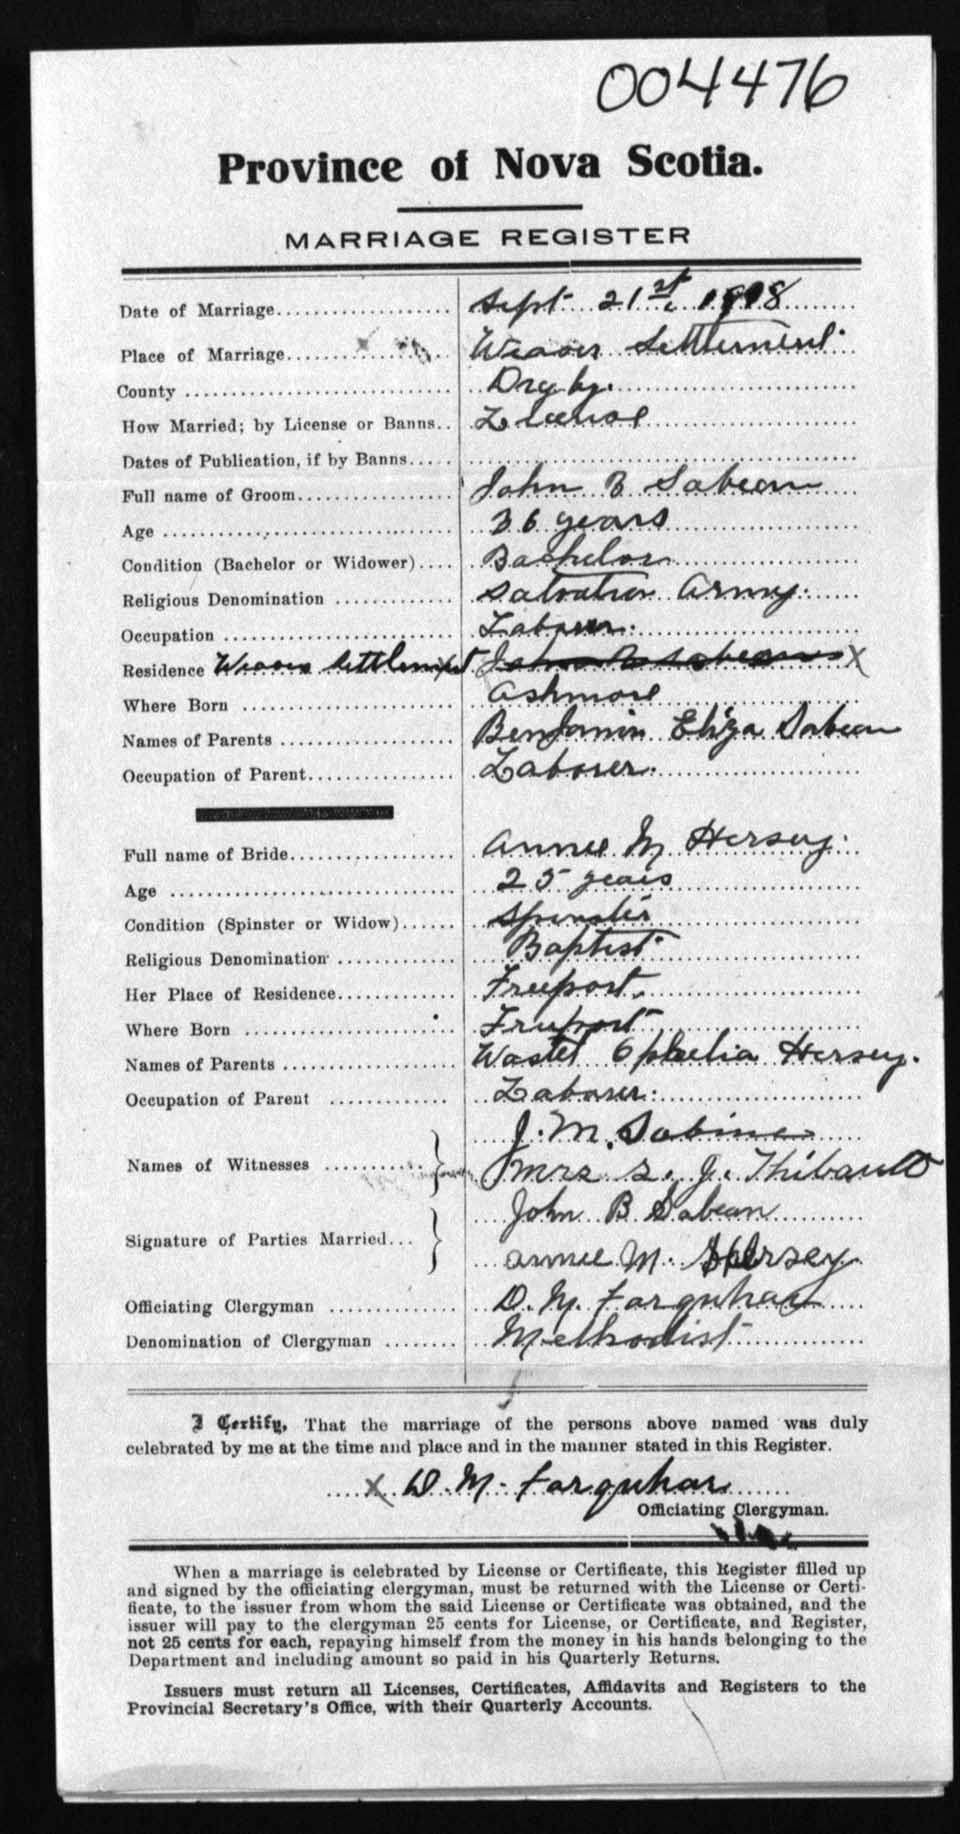 004476
Province of Nova Scotia.
MARRIAGE REGISTER
Date of Marriage.................... Sept 21st 1918
Place of Marriage.................... Weaver Settlement.
County .................... Digby.
How Married; by License or Banns.. License
Dates of Publication, if by Banns.....
Full name of Groom.................... John B Sabean
Age .................... 36 years
Condition (Bachelor or Widower).... Bachelor
Religious Denomination .................... Salvation Army.
Occupation .................... Laborer.
Residence Weaver Settlement John B Sabean X
Where Born .................... Ashmore
Names of Parents .................... Benjamin Eliza Sabean
Occupation of Parent.................... Laborer.
Full name of Bride.................... Annee M Hersey.
Age .................... 25 years
Condition (Spinster or Widow)...... Spinster
Religious Denomination .................... Baptist.
Her Place of Residence.................... Freeport.
Where Born .................... Freeport
Names of Parents .................... Ophelia Hersey.
Occupation of Parent .................... Laborer.
J. M. Sabine
Names of Witnesses .......... } Mrs S. J. Thibault
John B Sabean
Signature of Parties Married... }
Annee M. Hersey
Officiating Clergyman .................... D. M. Farquhar
Denomination of Clergyman ........ Methodist
I Certify, That the marriage of the persons above named was duly
celebrated by me at the time and place and in the manner stated in this Register.
X D. M. Farquhar
Officiating Clergyman.
When a marriage is celebrated by License or Certificate, this Register filled up
and signed by the officiating clergyman, must be returned with the License or Certi-
ficate, to the issuer from whom the said License or Certificate was obtained, and the
issuer will pay to the clergyman 25 cents for License, or Certificate, and Register,
not 25 cents for each, repaying himself from the money in his hands belonging to the
Department and including amount so paid in his Quarterly Returns.
Issuers must return all Licenses, Certificates, Affidavits and Registers to the
Provincial Secretary's Office, with their Quarterly Accounts.